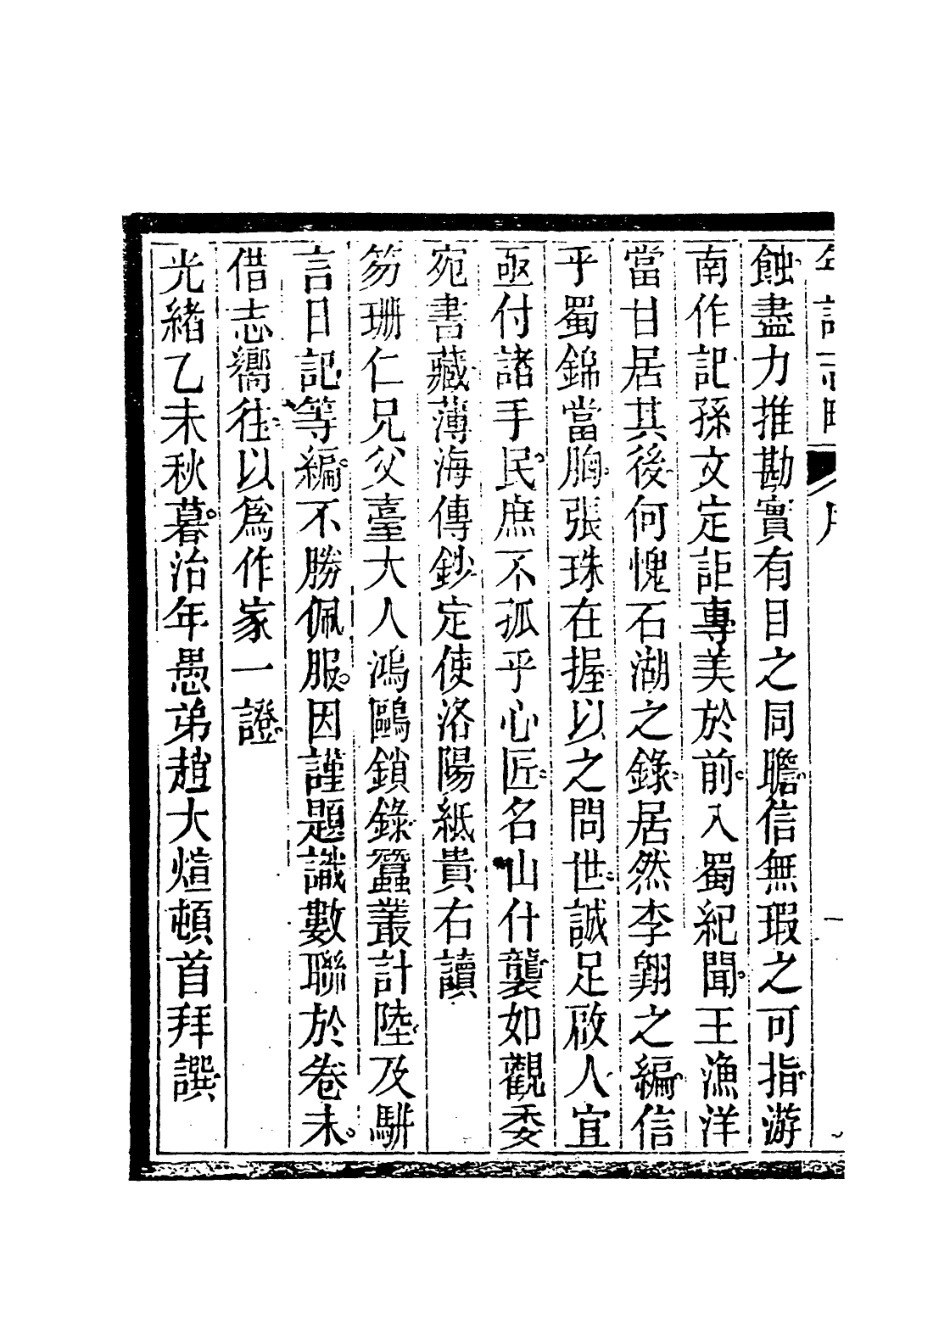 蝕盡力推勘實有目之同瞻信無瑕之可指游
南作記孫文定詎專美於前入蜀紀聞王漁洋
當甘居其後何愧石湖之錄居然李翺之編信
乎蜀錦當胸張珠在握以之問世誠足啟人宜
亟付諸手民庶不孤乎心匠名山什襲如觀委
宛書藏薄海傳鈔定使洛陽紙貴右讀
笏珊仁兄父臺大人鴻鷗鎖錄蠶叢計陸及騈
言日記等編不勝佩服因謹題識數聯於卷末
借志嚮往以爲作家一證
光緒乙未秋暮治年愚弟趙大煊頓首拜譔